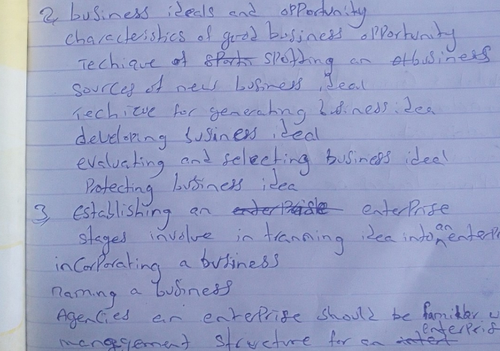 2, business ideals and opportunity
characteristics of good business opportunity
Techique of spotting an business
sources of new business ideal
Techieve for generating business idea
developing business ideal
evaluating and selecting business ideal
Protecting business idea
3, establishing an enterprise
stages involve in tranning idea into an enterpr
incorporating a business
naming a business
Agencies an enterprise should be familiar w
management structure for an enterprise